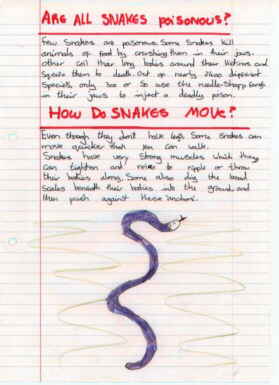 ARE ALL SNAKES POISONOUS?
Few Snakes are poisonous. Some Snakes kill
animals or food by crushing them in their jaws.
other coil their long bodies around their Victims and
Squeeze them to death. Out of nearly 2500 different
Species, only 200 or So use the needle-Sharp fangs
in their jaws to inject a deadly poison.
HOW DO SNAKES MOVE?
Even though they don't have legs Some Snakes can
move quicker than you can walk.
Snakes have very Strong muscles which they
can tighten and to ripple or throw
their bodies along. Some also dig the broad
Scales beneath their bodies into the ground, and
then push against these 'anchors'.